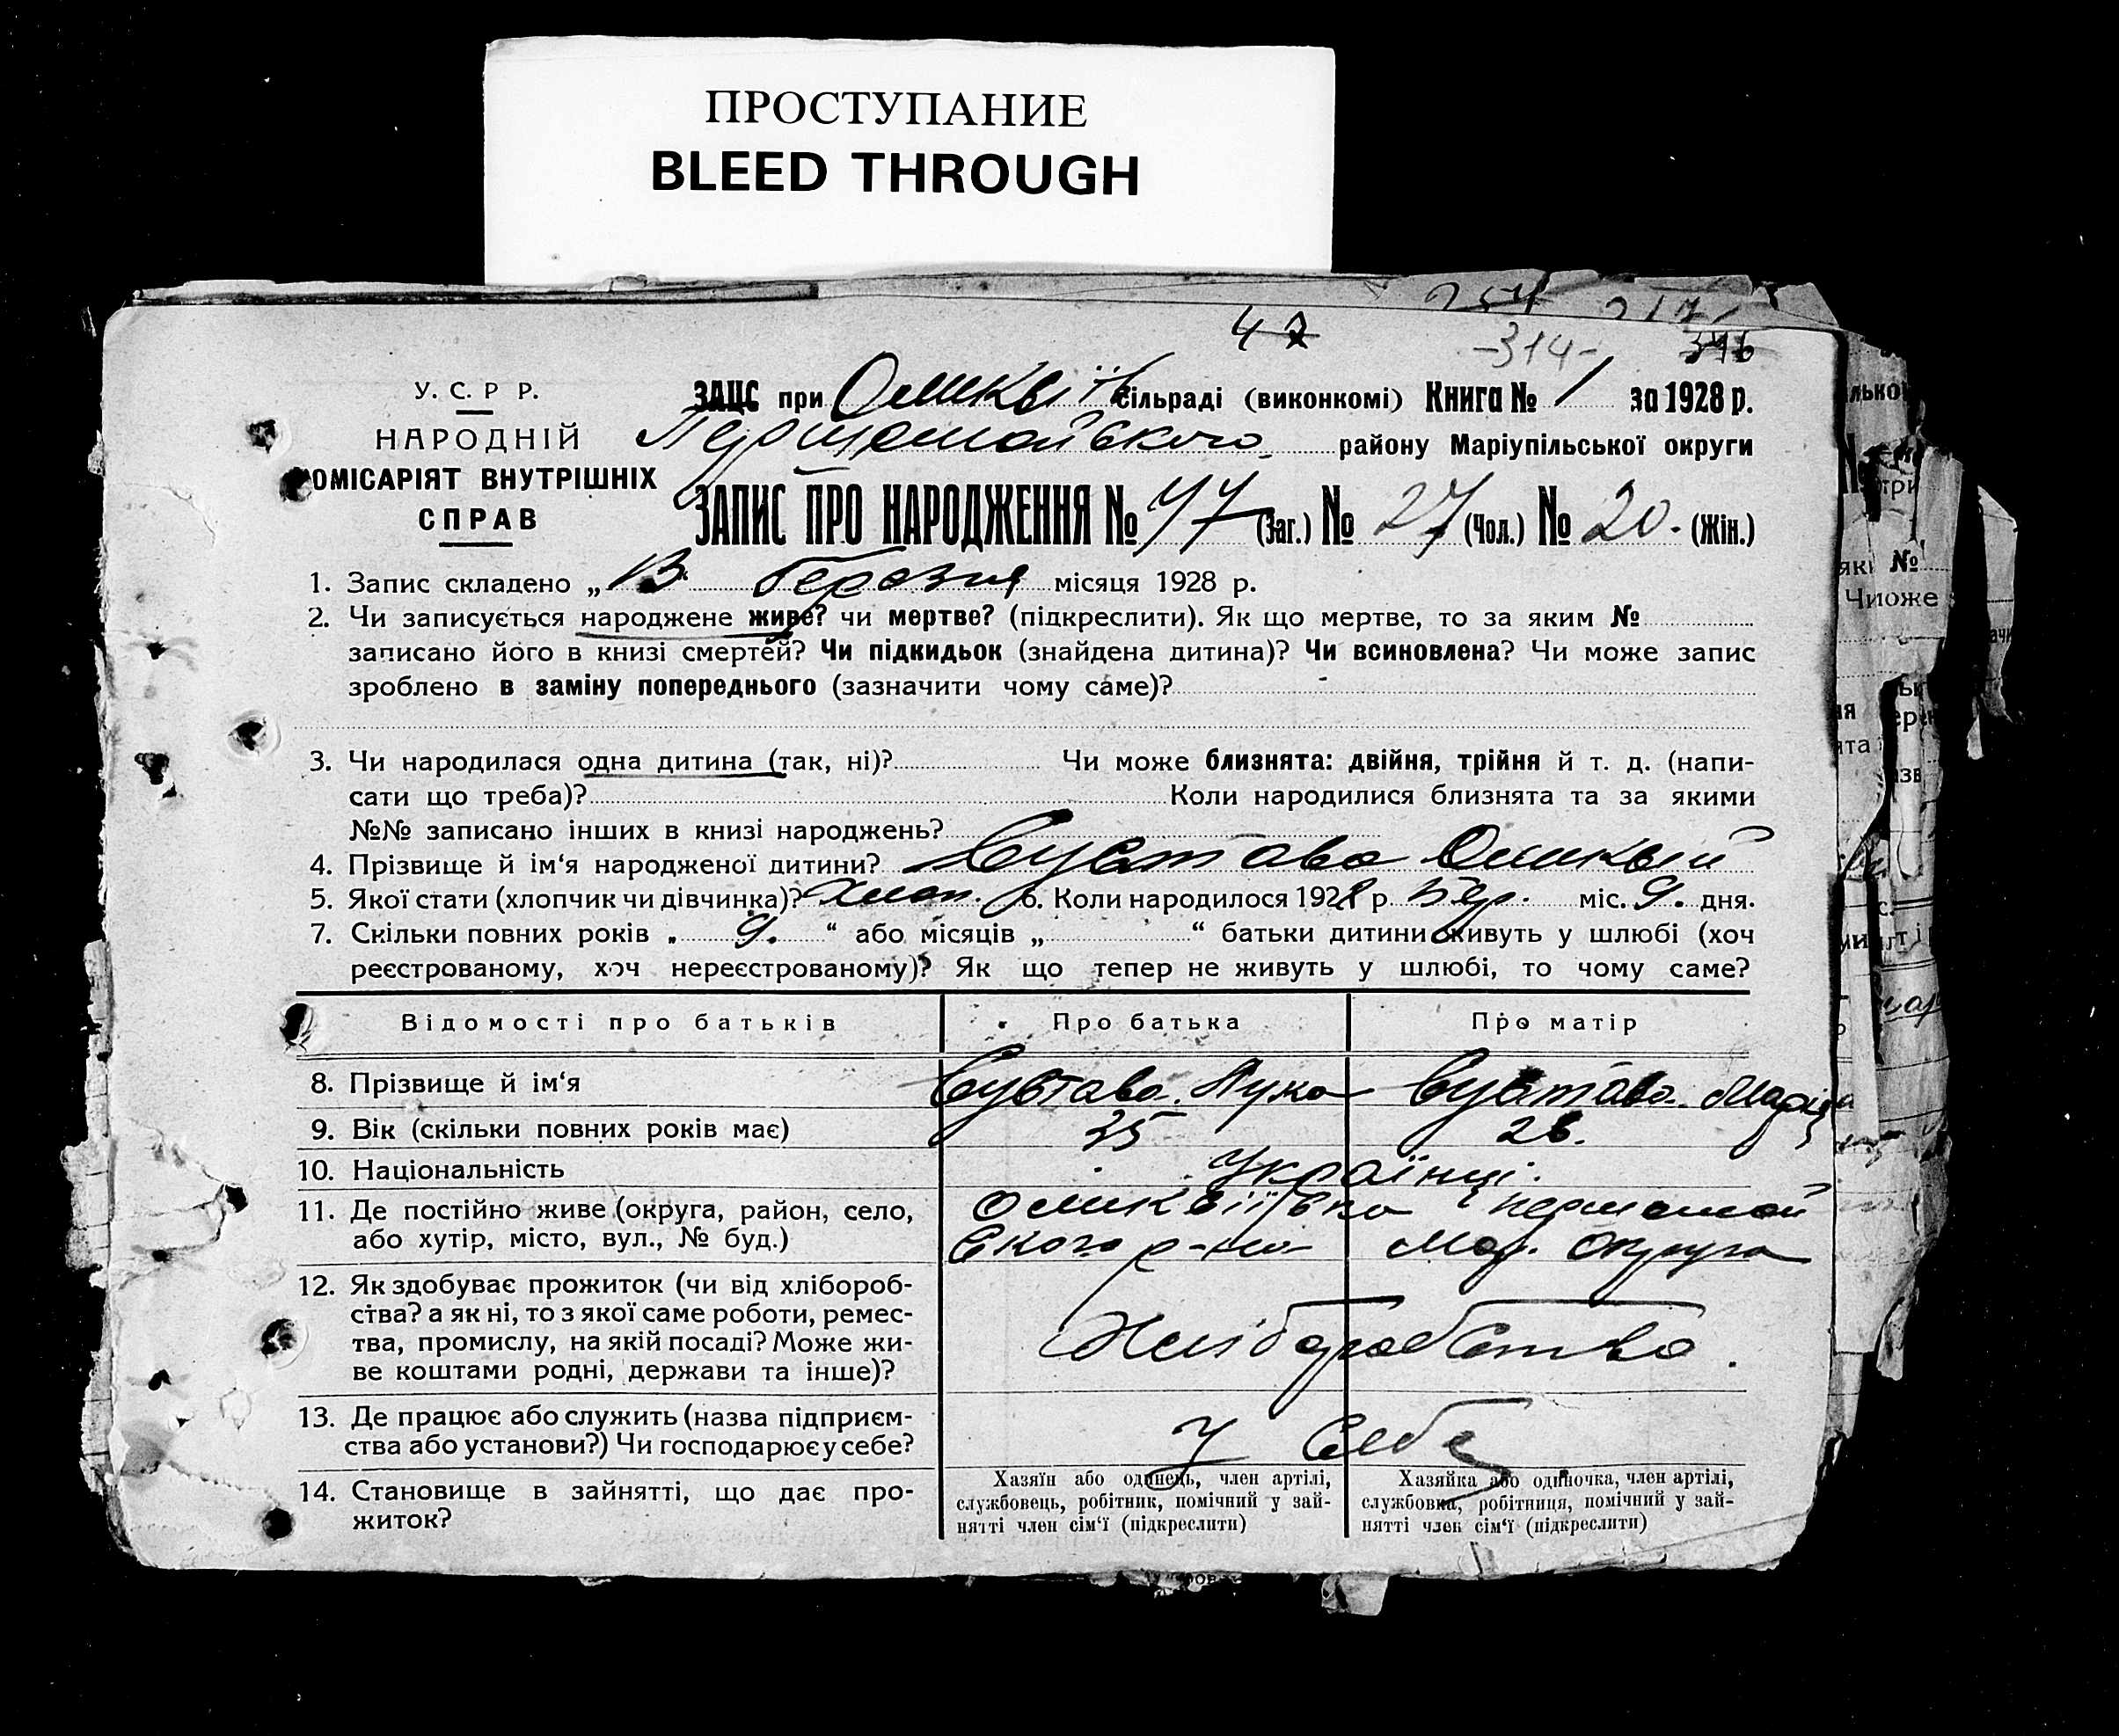 ПРОСТУПАНИЕ
BLEED THROUGH
254 217
47 -314- 346
У. С. Р. Р.
НАРОДНІЙ
ОМІСАРІЯТ ВНУТРІШНІХ
СПРАВ
ЗАЦС при сільраді (виконкомі) Книга № 1 за 1928 р.
Першомайського району Маріупільської округи
ЗАПИС ПРО НАРОДЖЕННЯ № 47 (Заг.) № 27 (Чол.) № 20. (Жін.)
1. Запис складено „13" березня місяця 1928 р.
2. Чи записується народжене живе? чи мертве? (підкреслити). Як що мертве, то за яким №
записано його в книзі смертей? Чи підкидьок (знайдена дитина)? Чи всиновлена? Чи може запис
зроблено в заміну попереднього (зазначити чому саме)? -
3. Чи народилася одна дитина (так, ні)? Чи може близнята: двійня, трійня й т. д. (напи-
сати що треба)? Коли народилися близнята та за якими
№№ записано інших в книзі народжень?
4. Прізвище й ім‘я народженої дитини?
5. Якої стати (хлопчик чи дівчинка)? хлоп. 6. Коли народилося 1928 р. Бер. міс. 9. дня.
7. Скільки повних років „ 9. “ або місяців „ “ батьки дитини живуть у шлюбі (хоч
реєстрованому, хоч нереєстрованому)? Як що тепер не живуть у шлюбі, то чому саме?
Відомості про батьків Про батька Про матір
8. Прізвище й ім‘я Лука Марія
9. Вік (скільки повних років має) 35 26.
10. Національність Українці.
11. Де постійно живе (округа, район, село, першомай
або хутір, місто, вул., № буд.) ського р-ну Мар. Округа
12. Як здобуває прожиток (чи від хлібороб-
ства? а як ні, то з якої саме роботи, ремес-
тва, промислу, на якій посаді? Може жи-
ве коштами родні, держави та інше)?
Хліборобство.
13. Де працює або служить (назва підприєм-
ства або установи?) Чи господарює у себе?
У себе
14. Становище в зайнятті, що дає про-
житок?
Хазяїн або одинець, член артілі,
службовець, робітник, помічний у зай-
нятті член сім‘ї (підкреслити)
Хазяйка або одиночка, член артілі,
службовка, робітниця, помічний у зай-
нятті член сім‘ї (підкреслити)